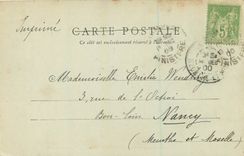 Imprimé
CARTE POSTALE
Ce côté est exclusivement réservé à l'adresse
FINISTERE
5
Mademoiselle Emilie
3, rue de l'
Bon Coin Nancy
(Meurthe et Moselle)